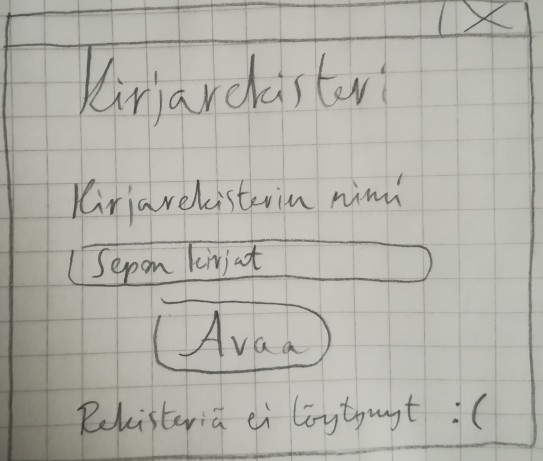 X
Kirjarekisteri
Kirjarekisterin nimi
Sepon kirjat
Avaa
Rekisteriä ei löytynyt :(